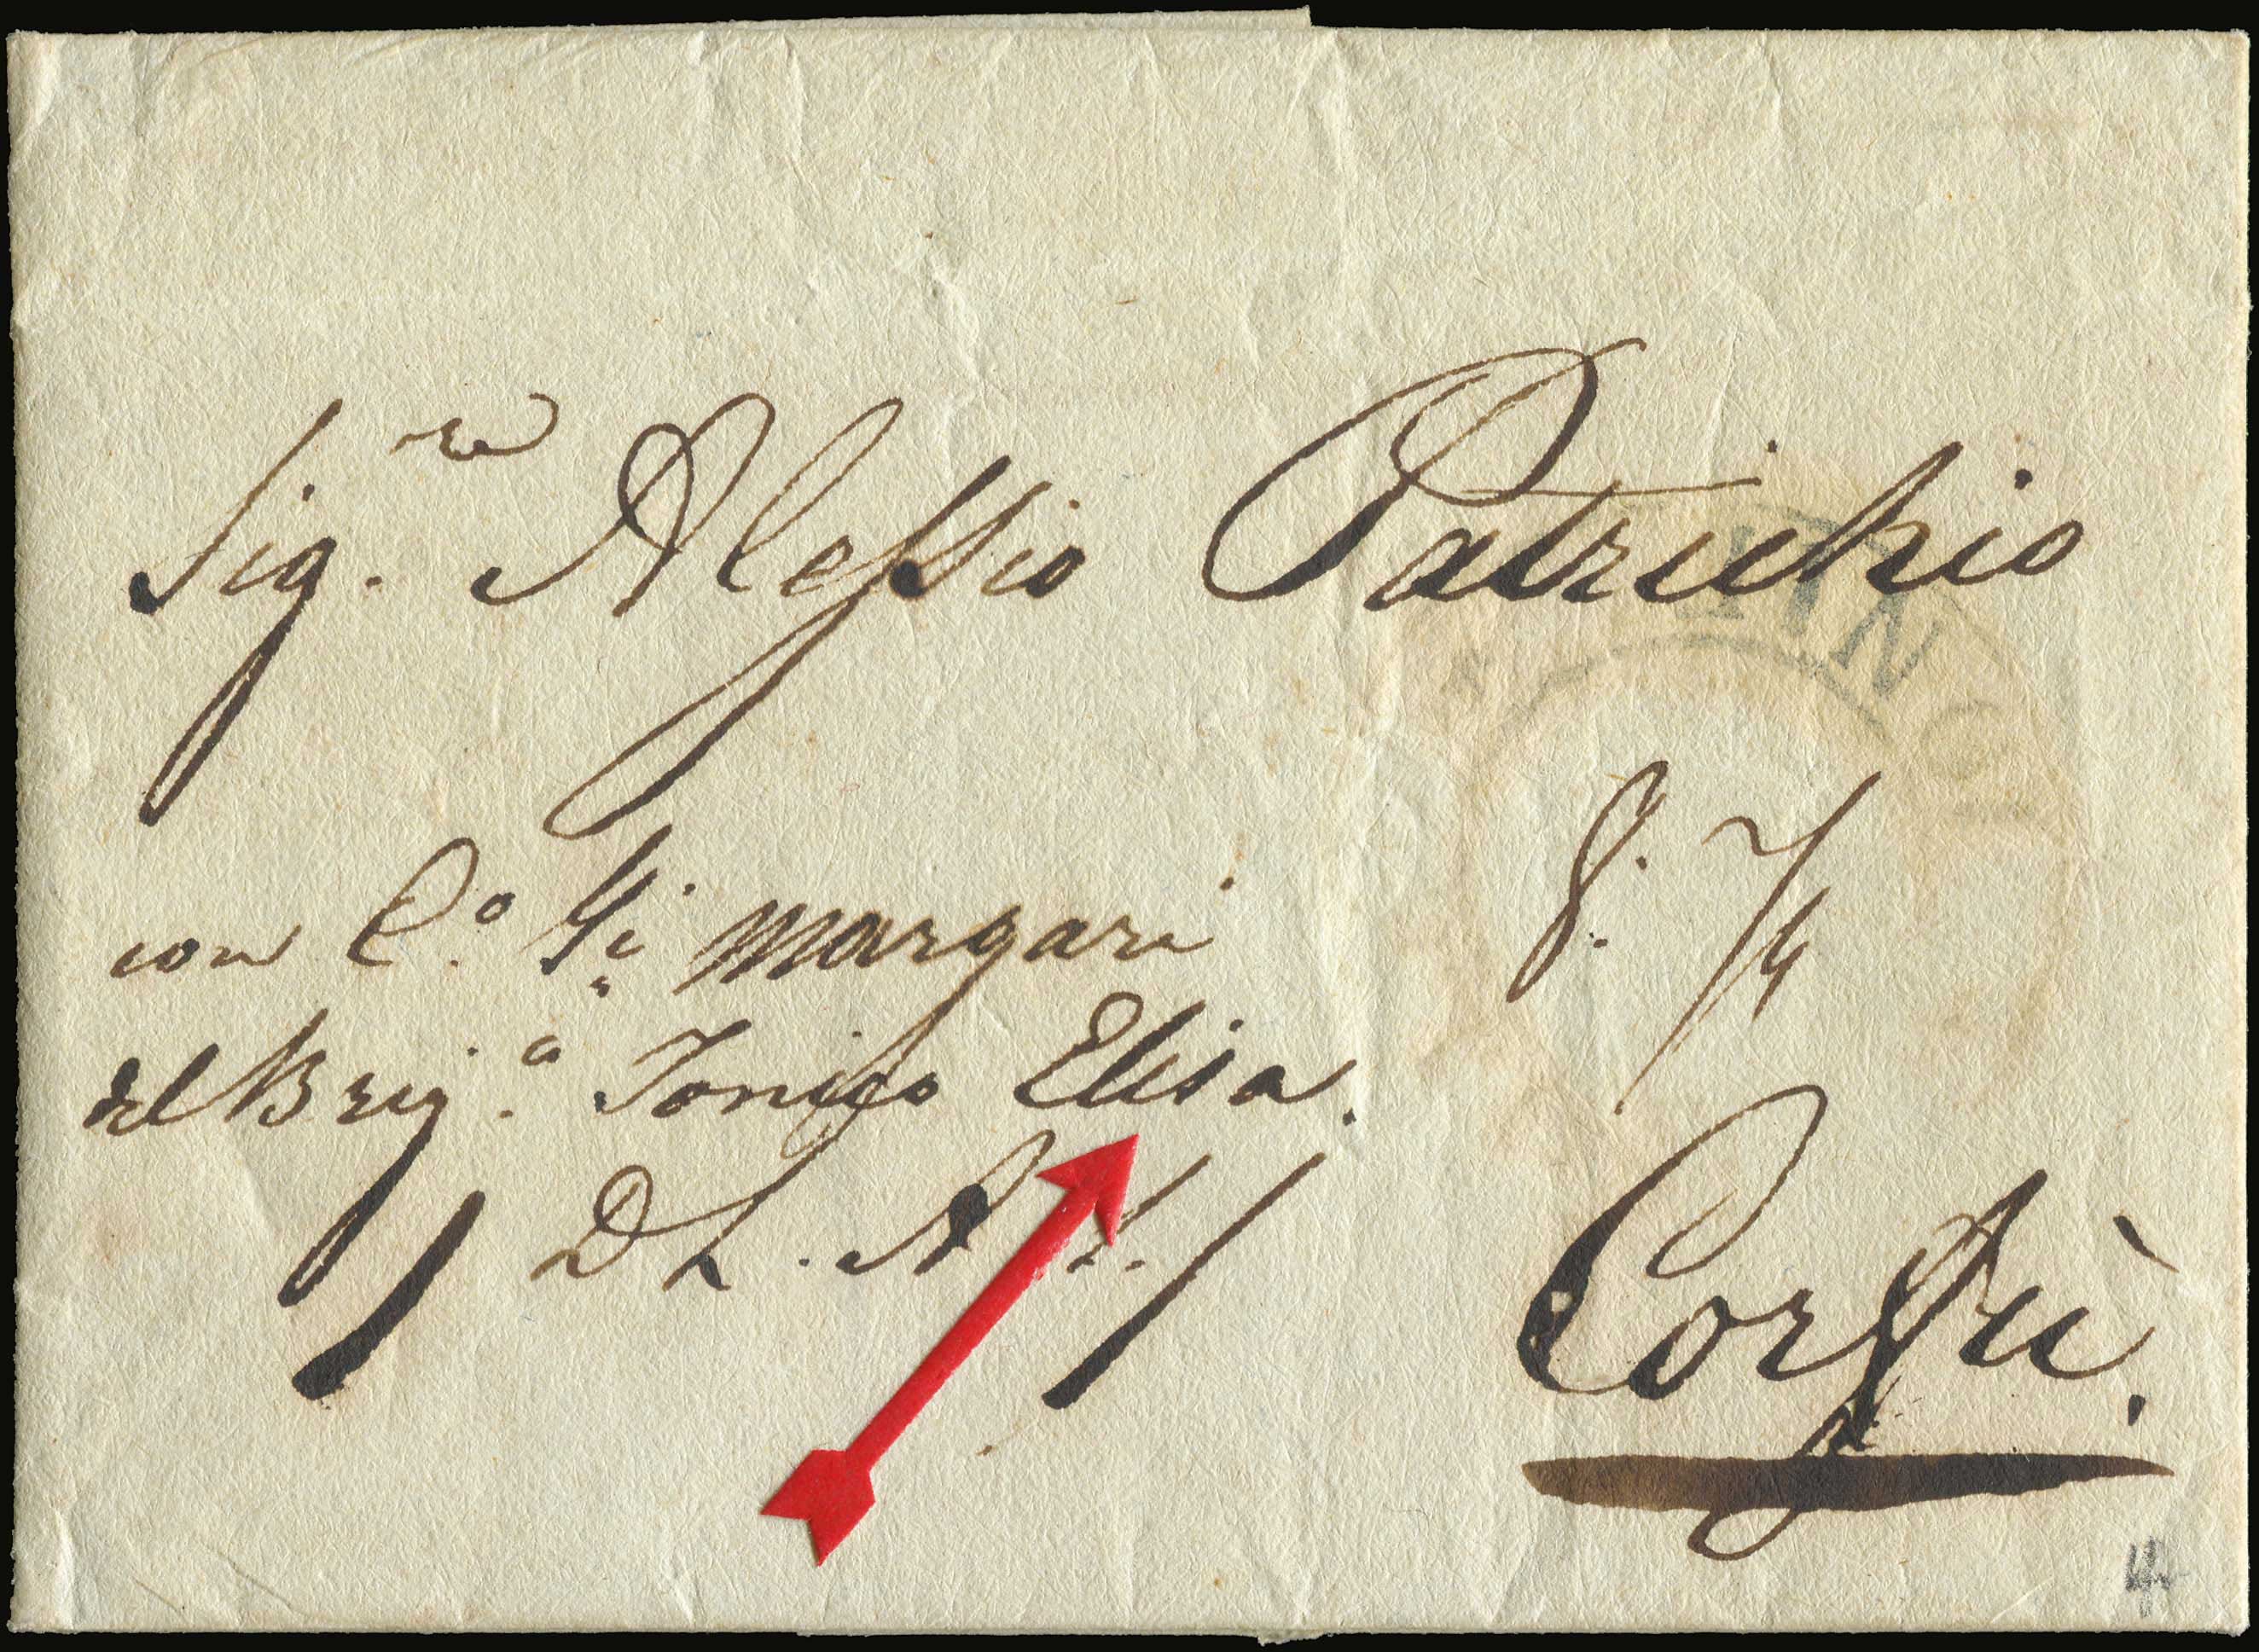 Sig.re Alessio Patrichio
con C.o Gi Margari
del Brig.o Jonico Elisa.
D L. A.
Corfù.